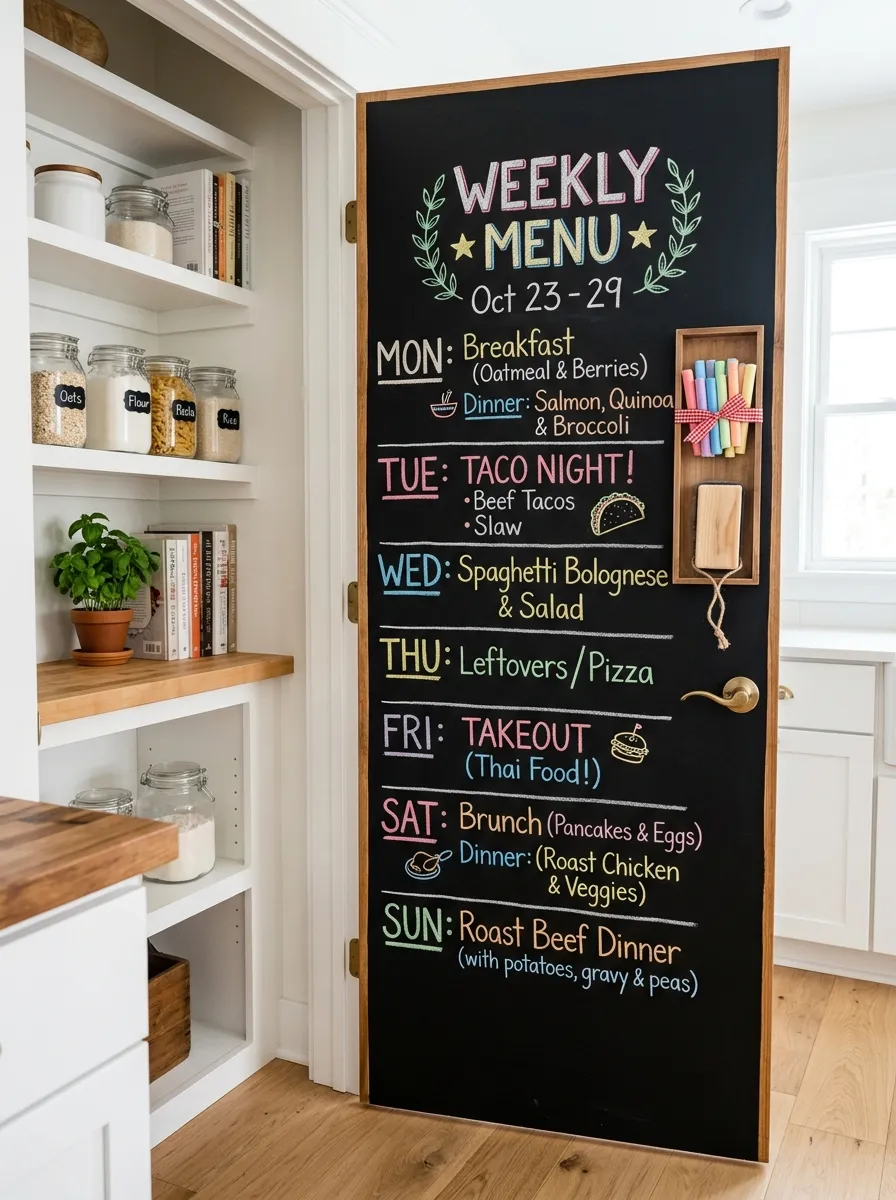 WEEKLY
MENU
Oct 23 - 29
MON: Breakfast
(Oatmeal & Berries)
Dinner: Salmon, Quinoa
& Broccoli
TUE: TACO NIGHT!
• Beef Tacos
• Slaw
WED: Spaghetti Bolognese
& Salad
THU: Leftovers/Pizza
FRI: TAKEOUT
(Thai Food!)
SAT: Brunch (Pancakes & Eggs)
Dinner: (Roast Chicken
& Veggies)
SUN: Roast Beef Dinner
(with potatoes, gravy & peas)
Oets
Flour
Recla
Rice